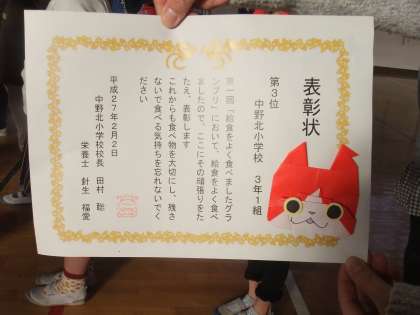 表彰状
第3位
中野北小学校 3年1組
第一回「給食をよく食べましたグラ
ンプリ」において、給食をよく食べ
ましたので、ここにその頑張りをた
たえ、表彰します
これからも食べ物を大切にし、残さ
ないで食べる気持ちを忘れないでく
ださい
平成27年2月2日
中野北小学校校長 田村 聡
栄養士 針生 福愛